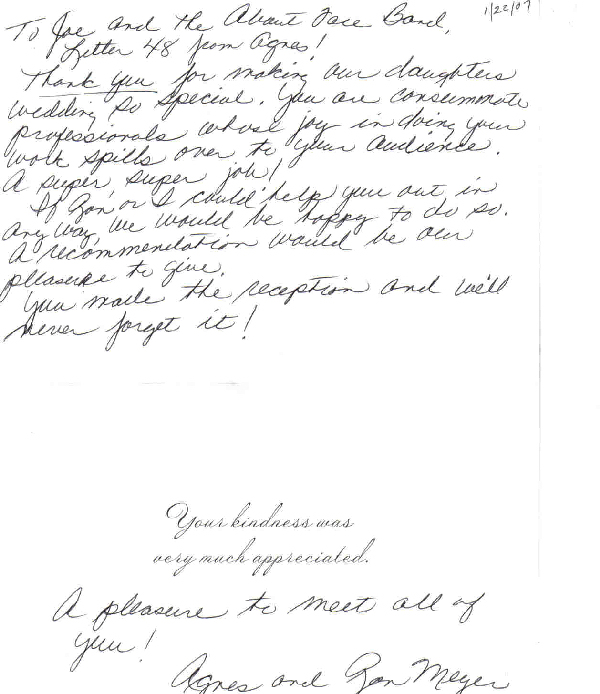 1/22/07
To Joe and the About Face Band,
Letter 48 from Agnes!
Thank you for making our daughters
wedding so special. You are consummate
professionals whose joy in doing your
work spills over to your audience.
A super, super job!
If Ron or I could help you out in
any way, we would be happy to do so.
A recommendation would be our
pleasure to give.
You made the reception and we'll
never forget it!
Your kindness was
very much appreciated.
A pleasure to meet all of
you!
Agnes and Ron Meyer